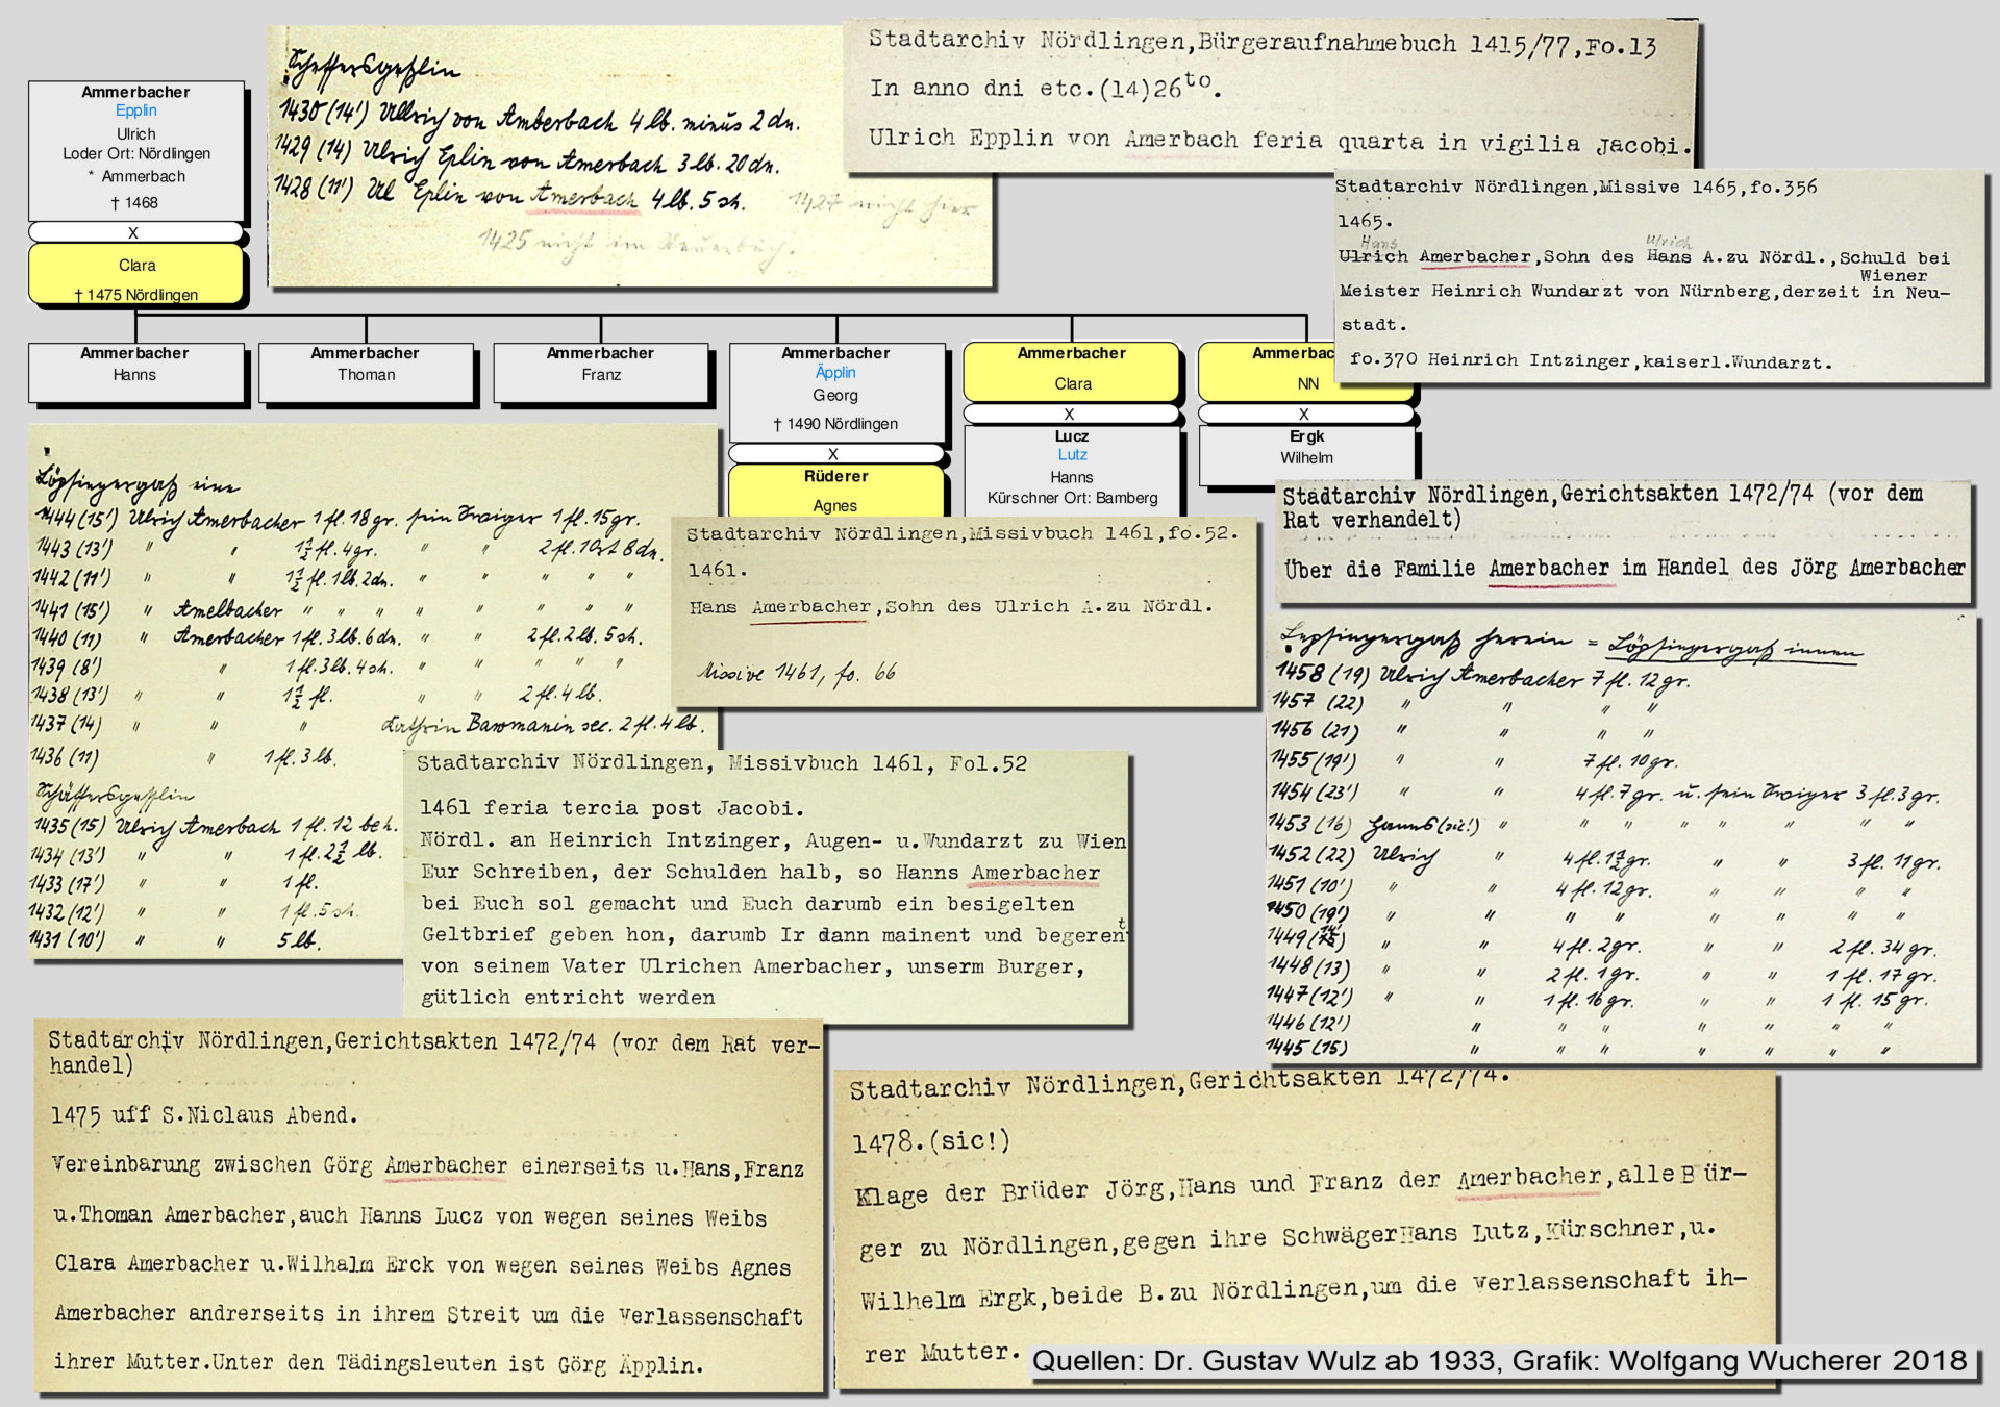 Ammerbacher
Epplin
Ulrich
Loder Ort: Nördlingen
* Ammerbach
† 1468
X
Clara
† 1475 Nördlingen
Scheffersgeßlin
1430 (14') Ullrich von Amberbach 4 lb. minus 2 dn.
1429 (14) Ulrich Eplin von Amerbach 3 lb. 20 dn.
1428 (11') Ul Eplin von Amerbach 4 lb. 5 sh. 1427 nicht hier
1425 nicht im Steuerbuch.
Stadtarchiv Nördlingen,Bürgeraufnahmebuch 1415/77,Fo.13
In anno dni etc.(14)26to.
Ulrich Epplin von Amerbach feria quarta in vigilia Jacobi.
Stadtarchiv Nördlingen,Missive 1465,fo.356
1465.
Hans Ulrich
Ulrich Amerbacher,Sohn des Hans A.zu Nördl.,Schuld bei
Wiener
Meister Heinrich Wundarzt von Nürnberg,derzeit in Neu-
stadt.
fo.370 Heinrich Intzinger,kaiserl.Wundarzt.
Ammerbacher
Hanns
Ammerbacher
Thoman
Ammerbacher
Franz
Ammerbacher
Äpplin
Georg
† 1490 Nördlingen
X
Rüderer
Agnes
Ammerbacher
Clara
X
Lucz
Lutz
Hanns
Kürschner Ort: Bamberg
Ammerbac
NN
X
Ergk
Wilhelm
Löpsingergaß eine
1444 (15') Ulrich Amerbacher 1 fl. 18 gr. sein Sweiger 1 fl. 15 gr.
1443 (13') " " 1½ fl. 4 gr. " " 2 fl. 10 8 dn.
1442 (11') " " 1½ fl. 1 lb. 2 dn. " " " " "
1441 (15') " Amelbacher " " " " " " " " "
1440 (11) " Amerbacher 1 fl. 3 lb. 6 dn. " " 2 fl. 2 lb. 5 sh.
1439 (8') " 1 fl. 3 lb. 4 sh. " " " " "
1438 (13') " " 1½ fl. " " 2 fl. 4 lb.
1437 (14) " " " Kathrin Bawmanin sec. 2 fl. 4 lb.
1436 (11) " 1 fl. 3 lb.
Schäffersgesslin
1435 (15) Ulrich Amerbach 1 fl. 12 beh.
1434 (13') " " 1 fl. 2½ lb.
1433 (17') " " 1 fl.
1432 (12') " " 1 fl. 5 sh.
1431 (10') " " 5 lb.
Stadtarchiv Nördlingen,Missivbuch 1461,fo.52.
1461.
Hans Amerbacher,Sohn des Ulrich A.zu Nördl.
Missive 1461, fo. 66
Stadtarchiv Nördlingen,Gerichtsakten 1472/74 (vor dem
Rat verhandelt)
Über die Familie Amerbacher im Handel des Jörg Amerbacher
Lepsingergaß herein = Löpsingergaß innen
1458 (19) Ulrich Amerbacher 7 fl. 12 gr.
1457 (22) " " " "
1456 (21) " " " "
1455 (19') " " 7 fl. 10 gr.
1454 (23') " " 4 fl. 7 gr. u. sein Sweiger 3 fl. 3 gr.
1453 (16) Hanns (sic!) " " " " " " " "
1452 (22) Ulrich " 4 fl. 17½ gr. " " 3 fl. 11 gr.
1451 (10') " " 4 fl. 12 gr. " " " "
1450 (19') " " " " " " " "
1449 " " 4 fl. 2 gr. " " 2 fl. 34 gr.
1448 (13) " " 2 fl. 1 gr. " " 1 fl. 17 gr.
1447 (12') " " 1 fl. 16 gr. " " 1 fl. 15 gr.
1446 (12') " " " " " " "
1445 (15) " " " " " " "
Stadtarchiv Nördlingen, Missivbuch 1461, Fol.52
1461 feria tercia post Jacobi.
Nördl. an Heinrich Intzinger, Augen- u.Wundarzt zu Wien
Eur Schreiben, der Schulden halb, so Hanns Amerbacher
bei Euch sol gemacht und Euch darumb ein besigelten
Geltbrief geben hon, darumb Ir dann mainent und begerent
von seinem Vater Ulrichen Amerbacher, unserm Burger,
gütlich entricht werden
Stadtarchiv Nördlingen,Gerichtsakten 1472/74 (vor dem Rat ver-
handel)
1475 uff S.Niclaus Abend.
Vereinbarung zwischen Görg Amerbacher einerseits u.Hans,Franz
u.Thoman Amerbacher,auch Hanns Lucz von wegen seines Weibs
Clara Amerbacher u.Wilhalm Erck von wegen seines Weibs Agnes
Amerbacher andrerseits in ihrem Streit um die Verlassenschaft
ihrer Mutter.Unter den Tädingsleuten ist Görg Äpplin.
Stadtarchiv Nördlingen,Gerichtsakten 1472/74.
1478.(sic!)
Klage der Brüder Jörg,Hans und Franz der Amerbacher,alle Bür-
ger zu Nördlingen,gegen ihre SchwägerHans Lutz,Kürschner,u.
Wilhelm Ergk,beide B.zu Nördlingen,um die Verlassenschaft ih-
rer Mutter.
Quellen: Dr. Gustav Wulz ab 1933, Grafik: Wolfgang Wucherer 2018